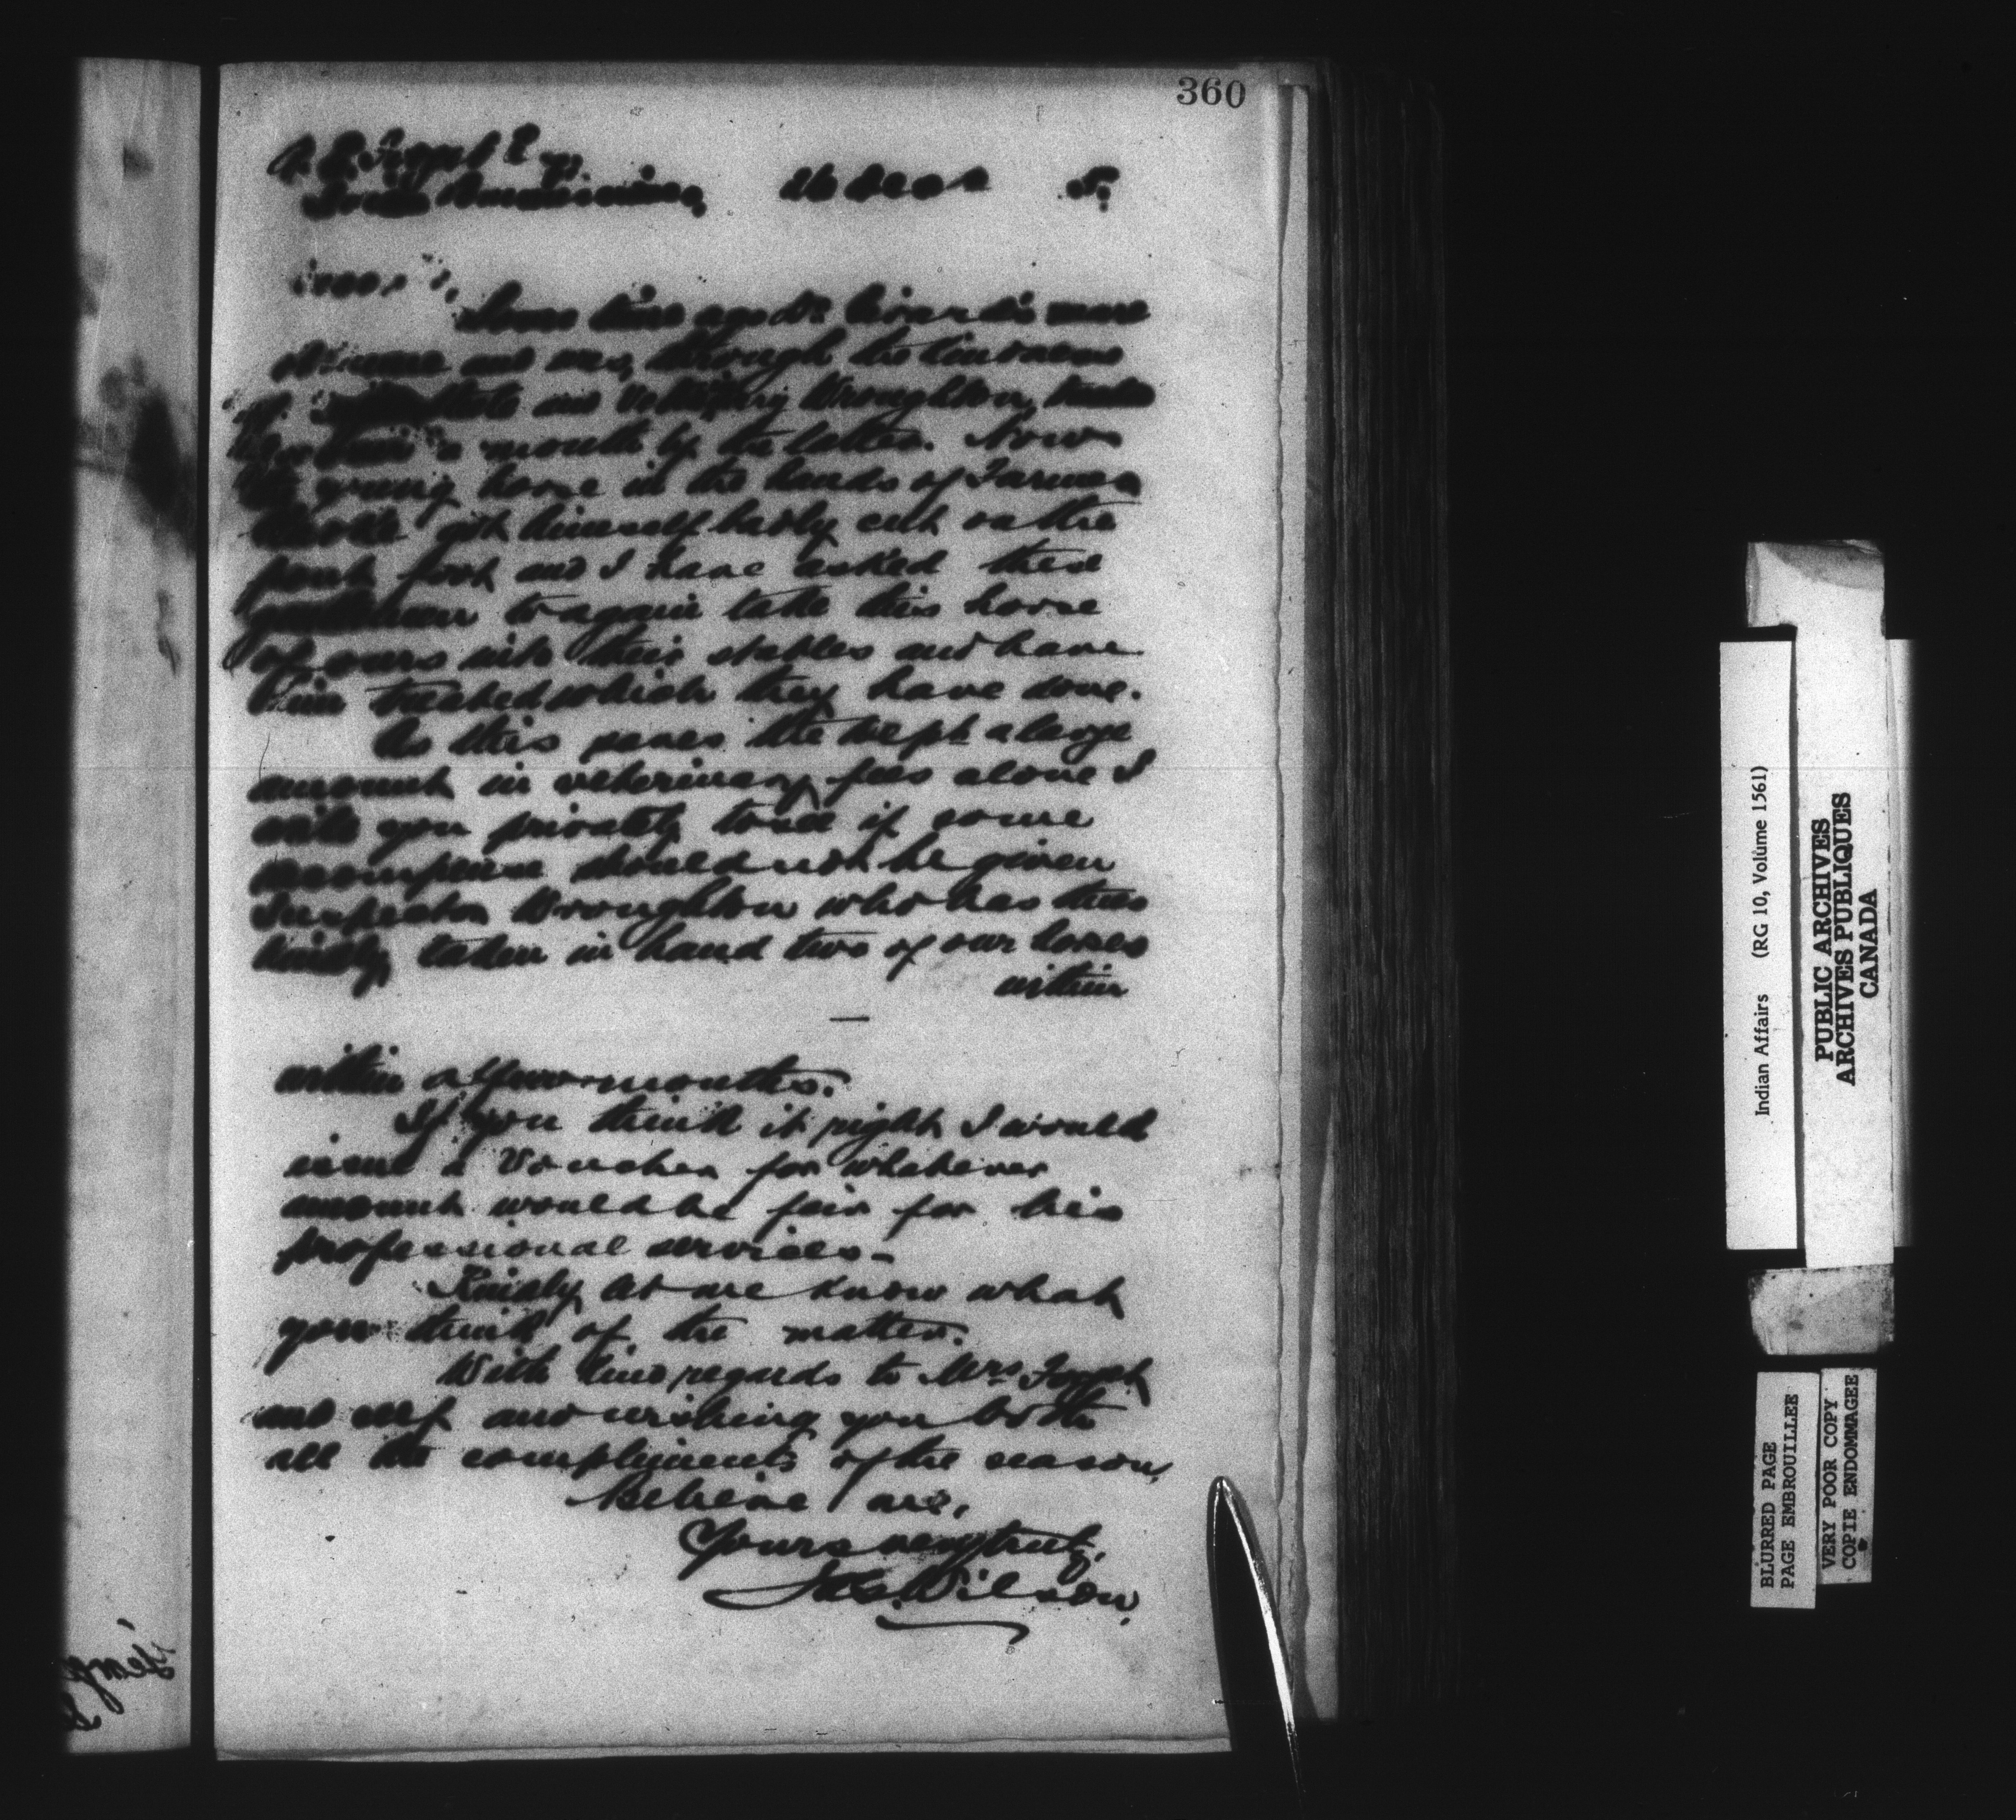 360
A. E. Forget Esq
Indian Commissioner, 26 Dec 5.
Dear Sir,
Some time ago Dr Girard's mare
and was, through the kindness
of and Veterinary Wroughton, treated
a month by the latter. Now
the young horse in the hands of Farmer
got himself badly cut on the
front foot and I have asked these
gentlemen to again take this horse
of ours into their stables and have
him treated which they have done.
As this saves the Dept a large
amount in veterinary fees alone I
write you privately to see if some
recompense should not be given
Inspector Wroughton who has thus
kindly taken in hand two of our horses
within
within a few months.
If you think it right I would
issue a Voucher for whatever
amount would be fair for his
professional services -
Kindly let me know what
you think of the matter.
With kind regards to Mrs Forget
and self and wishing you both
all the compliments of the season,
Believe me,
Yours very truly,
Jas. Wilson
Indian Affairs (RG 10, Volume 1561)
PUBLIC ARCHIVES
ARCHIVES PUBLIQUES
CANADA
BLURRED PAGE
PAGE EMBROUILLEE
VERY POOR COPY
COPIE ENDOMMAGEE